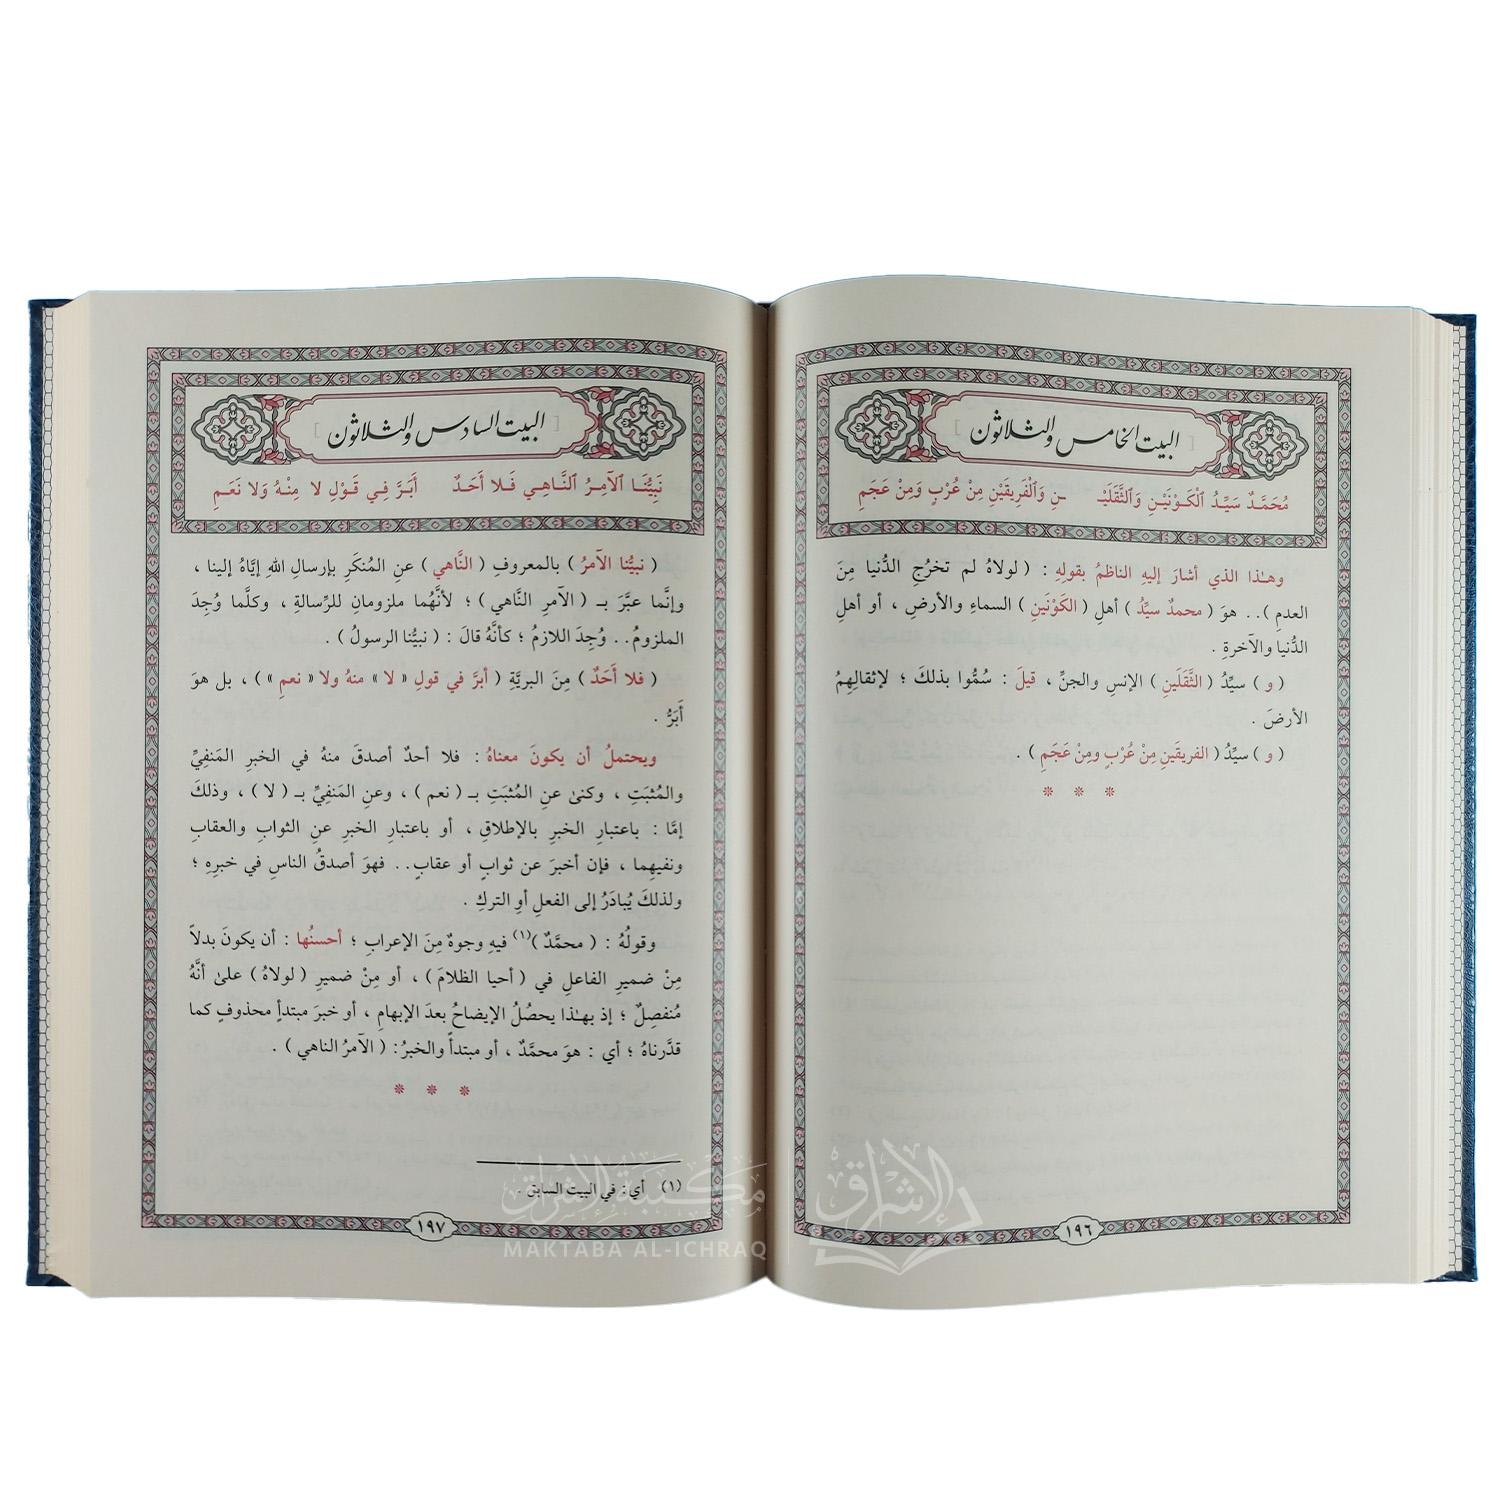 [ البيت الخامس والثلاثون ]
مُحَمَّدٌ سَيِّدُ ٱلْكَوْنَيْنِ وَٱلثَّقَلَيْـ ـنِ وَٱلْفَرِيقَيْنِ مِنْ عُرْبٍ وَمِنْ عَجَمِ
وهـٰذا الذي أشارَ إليهِ الناظمُ بقولهِ : ( لولاهُ لم تخرُجِ الدُّنيا مِنَ
العدمِ ) . . هوَ ( محمدٌ سيِّدُ ) أهلِ ( الكَوْنَينِ ) السماءِ والأرضِ ، أو أهلِ
الدُّنيا والآخرةِ .
( و ) سيِّدُ ( الثَّقَلَينِ ) الإنسِ والجنِّ ، قيلَ : سُمُّوا بذلكَ ؛ لإثقالِهِمُ
الأرضَ .
( و ) سيِّدُ ( الفريقَينِ مِنْ عُرْبٍ ومِنْ عَجَمِ ) .
* * *
١٩٦
[ البيت السادس والثلاثون ]
نَبِيُّنَا ٱلْآمِرُ ٱلنَّاهِي فَلَا أَحَدٌ أَبَرَّ فِي قَوْلِ لَا مِنْهُ وَلَا نَعَمِ
( نبيُّنا الآمرُ ) بالمعروفِ ( النَّاهي ) عنِ المُنكَرِ بإرسالِ اللهِ إيَّاهُ إلينا ،
وإنَّما عبَّرَ بـ ( الآمرِ النَّاهي ) ؛ لأنَّهُما ملزومانِ للرِّسالةِ ، وكلَّما وُجِدَ
الملزومُ . . وُجِدَ اللازمُ ؛ كأنَّهُ قالَ : ( نبيُّنا الرسولُ ) .
( فلا أَحَدٌ ) مِنَ البريَّةِ ( أبرَّ في قولِ « لا » منهُ ولا « نعمِ » ) ، بل هوَ
أَبَرُّ .
ويحتملُ أن يكونَ معناهُ : فلا أحدٌ أصدقَ منهُ في الخبرِ المَنفيِّ
والمُثبَتِ ، وكنىٰ عنِ المُثبَتِ بـ ( نعم ) ، وعنِ المَنفيِّ بـ ( لا ) ، وذلكَ
إمَّا : باعتبارِ الخبرِ بالإطلاقِ ، أو باعتبارِ الخبرِ عنِ الثوابِ والعقابِ
ونفيهِما ، فإن أخبرَ عن ثوابٍ أو عقابٍ . . فهوَ أصدقُ الناسِ في خبرِهِ ؛
ولذلكَ يُبادَرُ إلى الفعلِ أوِ التركِ .
وقولُهُ : ( محمَّدٌ )(١) فيهِ وجوهٌ مِنَ الإعرابِ ؛ أحسنُها : أن يكونَ بدلاً
مِنْ ضميرِ الفاعلِ في ( أحيا الظلامَ ) ، أو مِنْ ضميرِ ( لولاهُ ) علىٰ أنَّهُ
مُنفصِلٌ ؛ إذ بهـٰذا يحصُلُ الإيضاحُ بعدَ الإبهامِ ، أو خبرَ مبتدأٍ محذوفٍ كما
قدَّرناهُ ؛ أي : هوَ محمَّدٌ ، أو مبتدأً والخبرُ : ( الآمرُ الناهي ) .
* * *
(١) أي : في البيت السابق .
١٩٧
مكتبة الإشراق
MAKTABA AL-ICHRAQ
الإشراق